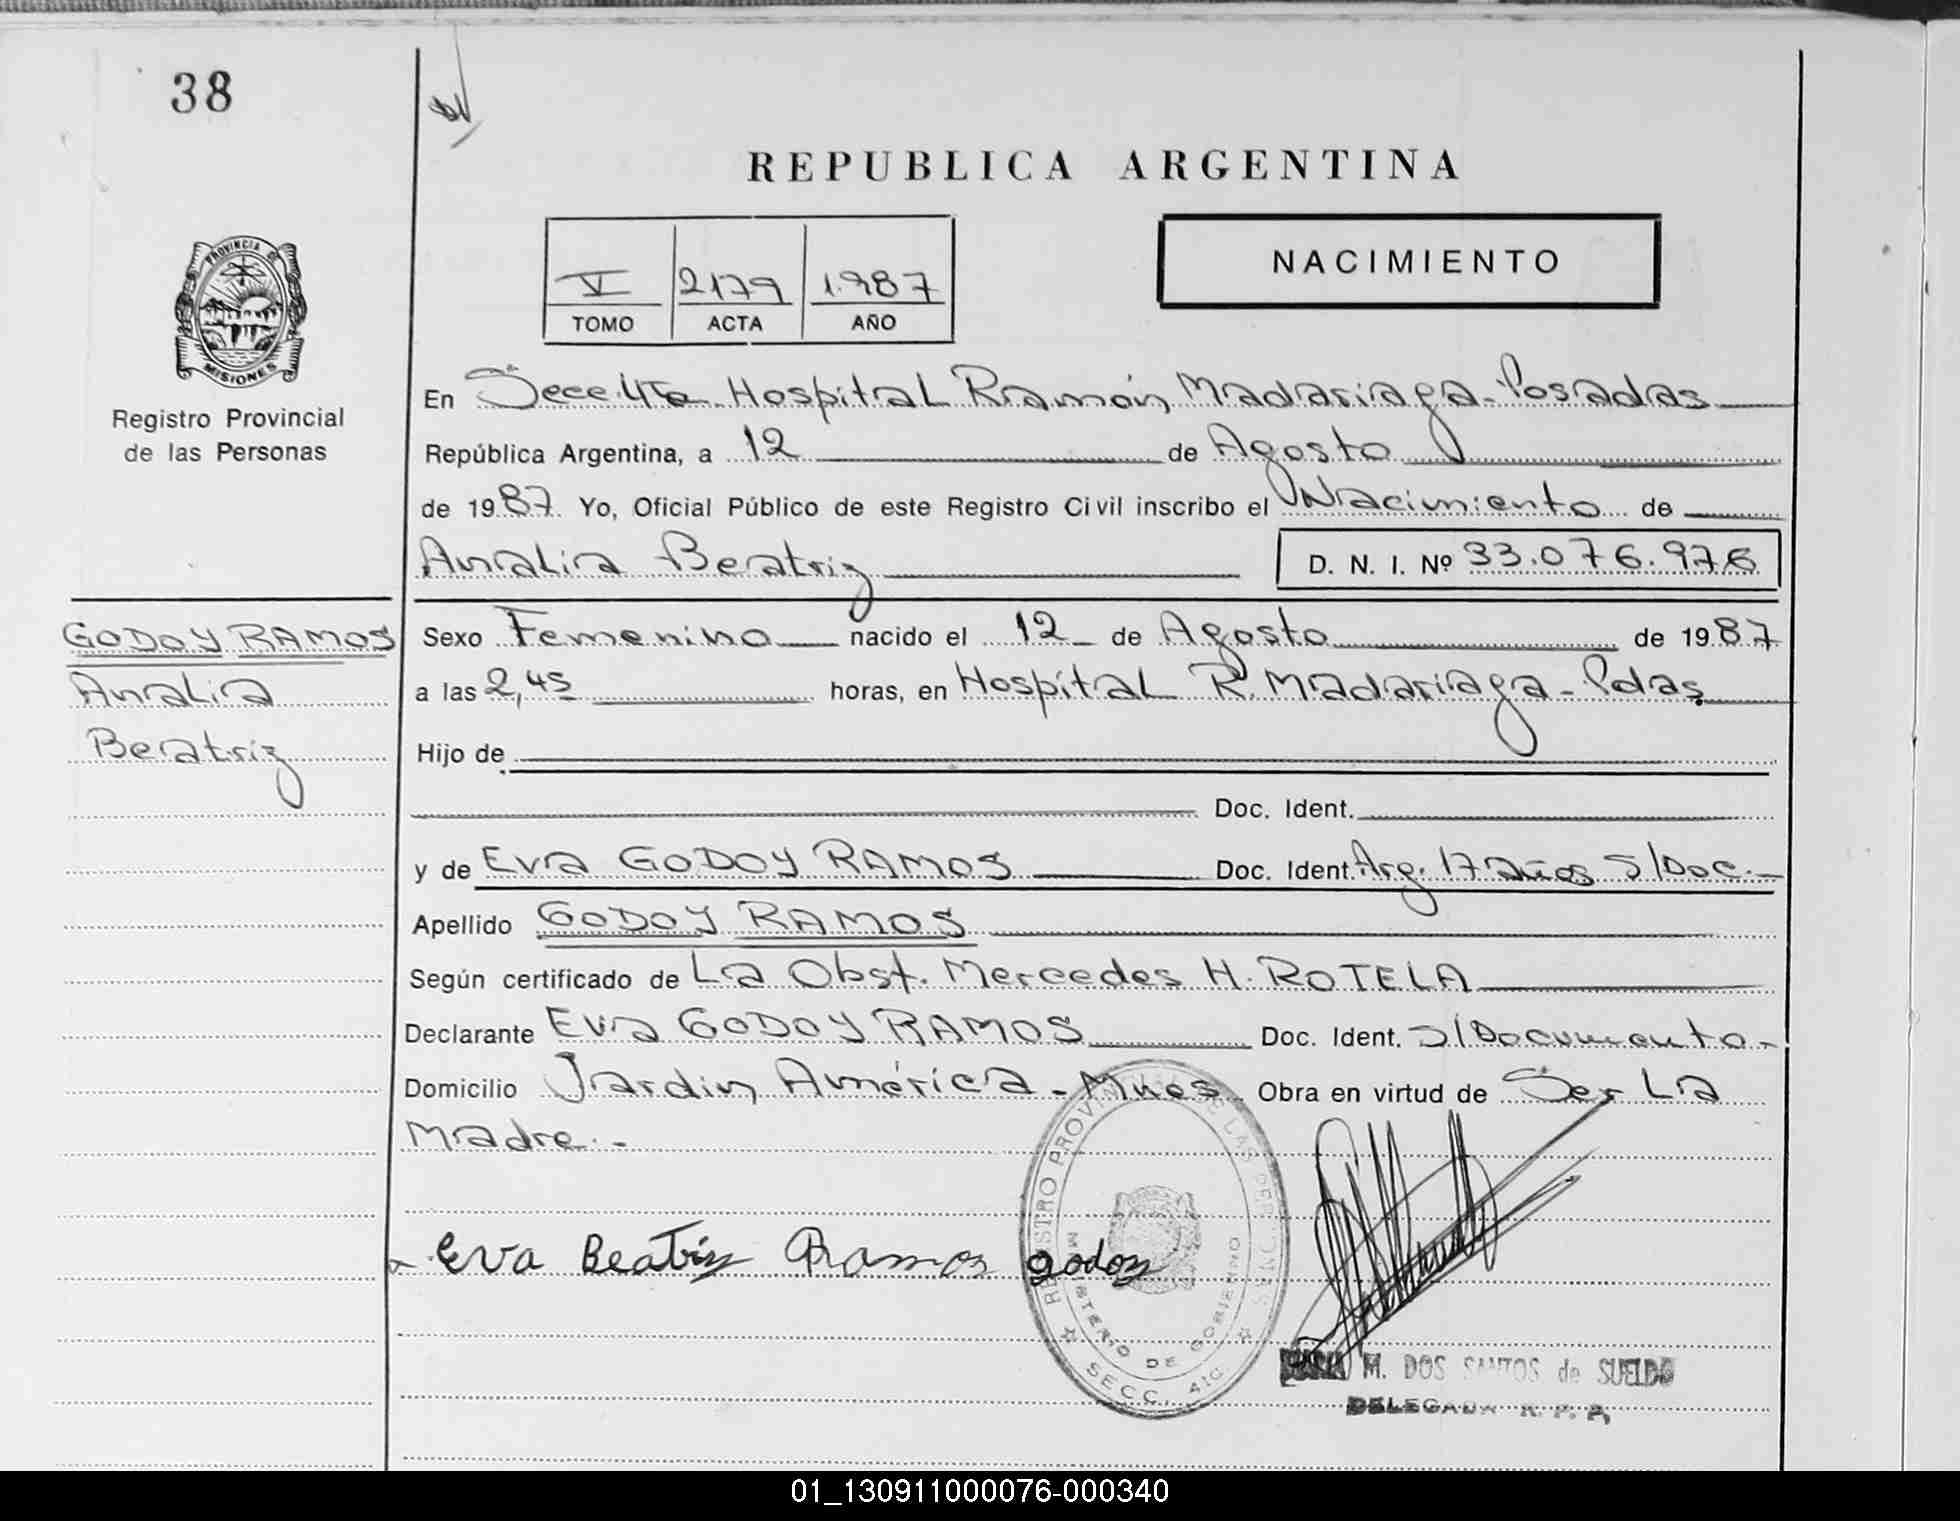 38
REPUBLICA ARGENTINA
NACIMIENTO
V 2179 1.987
TOMO ACTA AÑO
PROVINCIA DE
MISIONES
Registro Provincial
de las Personas
En Secc 4ta Hospital Ramón Madariaga - Posadas
República Argentina, a 12 de Agosto
de 1987 Yo, Oficial Público de este Registro Civil inscribo el Nacimiento de
Analia Beatriz D. N. I. Nº 33.076.976
GODOY RAMOS
Analia
Beatriz
Sexo Femenino nacido el 12 de Agosto de 1987
a las 2,45 horas, en Hospital R. Madariaga - Pdas
Hijo de
Doc. Ident.
y de Eva GODOY RAMOS Doc. Ident. Arg. 17 años S/Doc.-
Apellido GODOY RAMOS
Según certificado de La Obst. Mercedes H. ROTELA
Declarante Eva GODOY RAMOS Doc. Ident. S/Documento.-
Domicilio Jardin América - Mnes Obra en virtud de Ser La
Madre.-
Eva Beatriz Ramos godoy
REGISTRO PROVINCIAL DE LAS PERSONAS
MINISTERIO DE GOBIERNO
SECC.
M. DOS SANTOS de SUELDO
DELEGADA R. P. P.
01_130911000076-000340